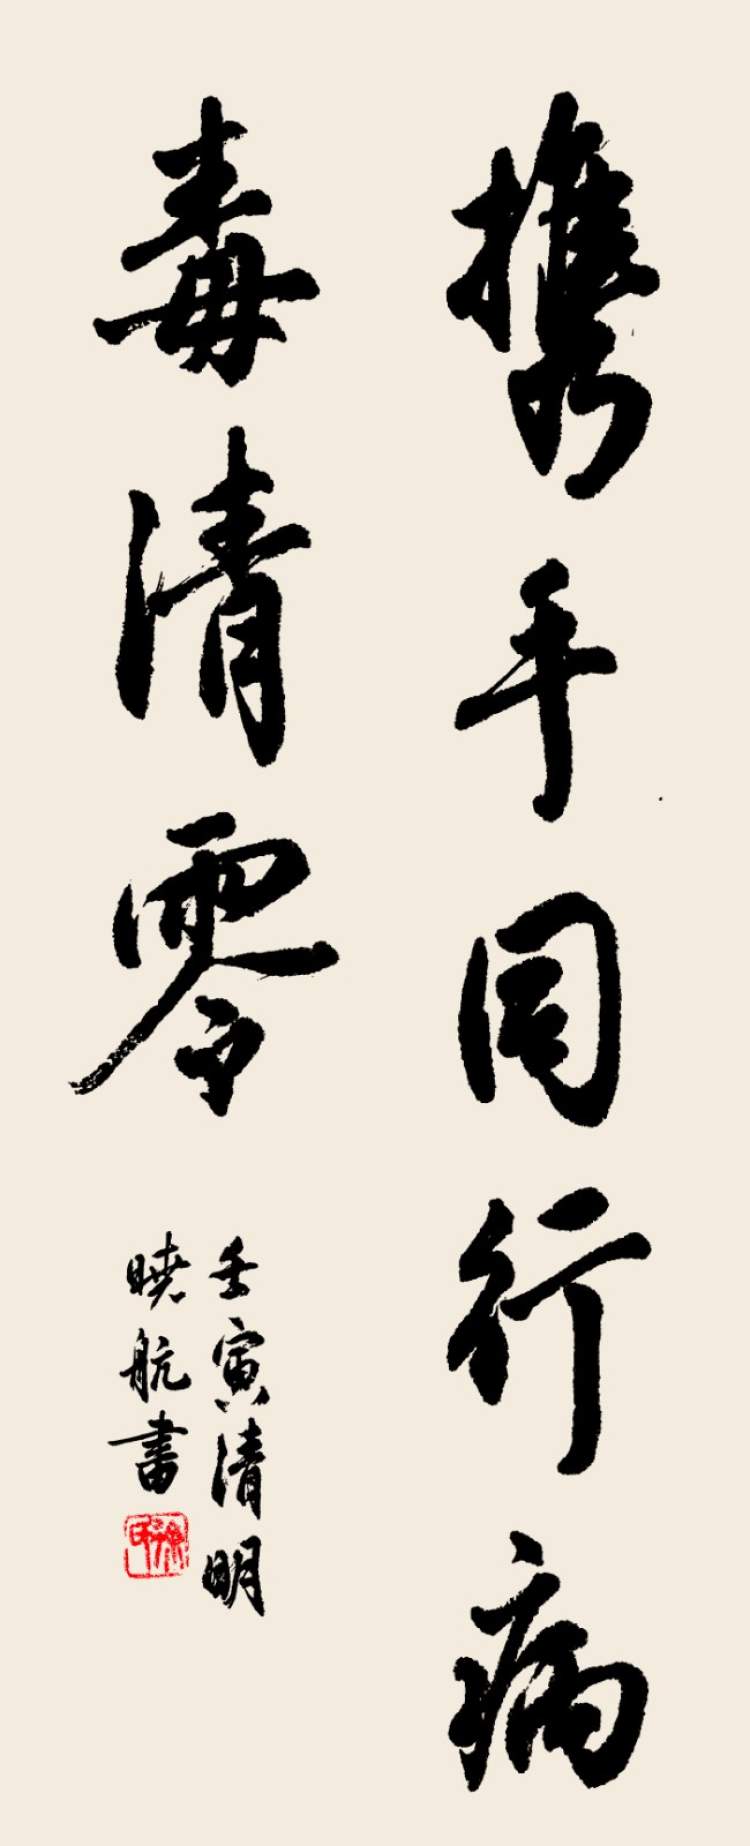 携手同行病
毒清零
壬寅清明
晓航書